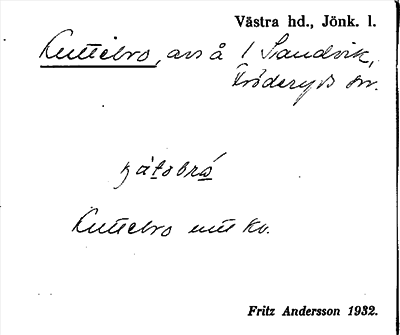 Västra hd., Jönk. l.
Kuttebro, avs å 1 Sandvik,
Fröderyds sn.
Kuttebro
Fritz Andersson 1932.